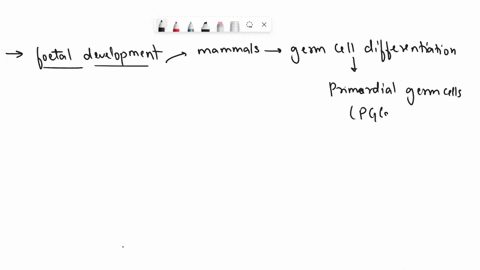 → foetal development → mammals → germ cell differentiation
↓
Primordial germ cells
(PGC